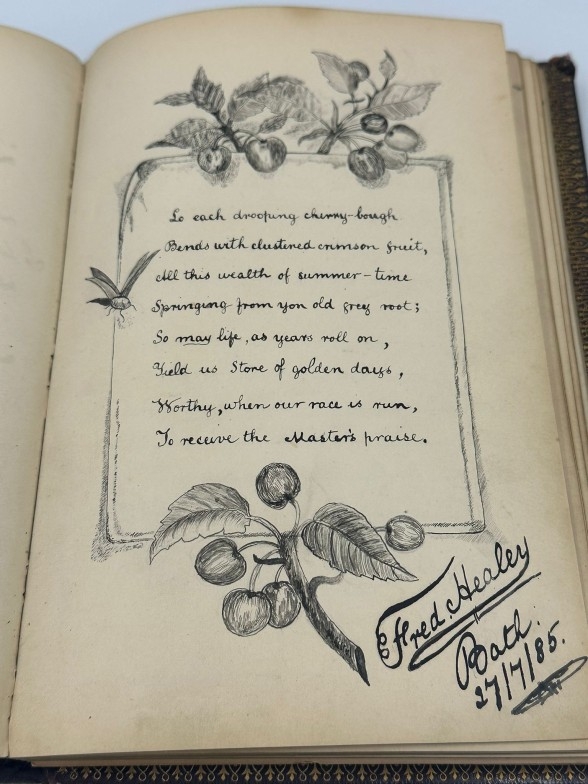 Lo each drooping cherry-bough
Bends with clustered crimson fruit,
All this wealth of summer-time
Springing from yon old grey root;
So may life, as years roll on,
Yield us Store of golden days,
Worthy, when our race is run,
To receive the Master's praise.
E Fred. Healey
Bath.
27/7/85.